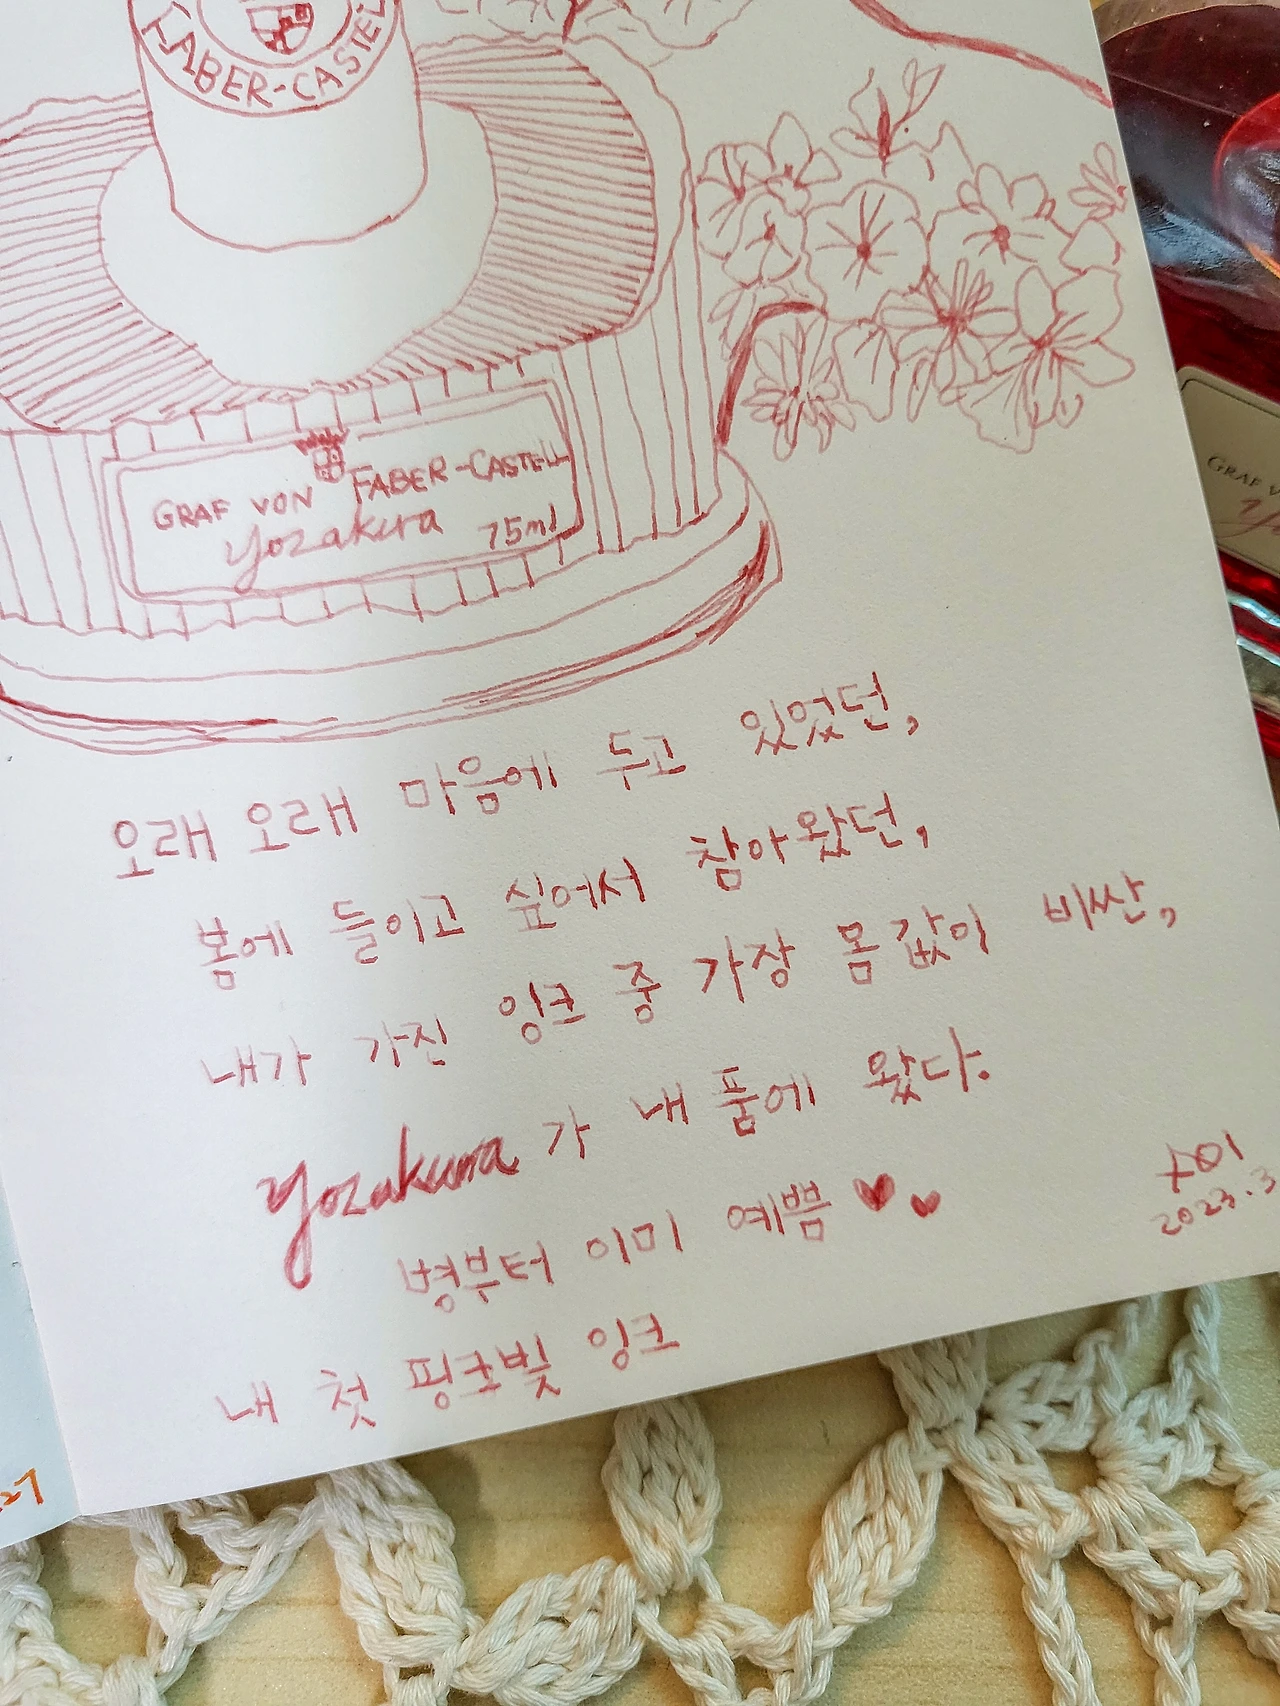 FABER-CASTEL
GRAF VON FABER-CASTELL
Yozakura 75ml
GRAF V
오래 오래 마음에 두고 있었던,
봄에 들이고 싶어서 참아왔던,
내가 가진 잉크 중 가장 몸값이 비싼,
Yozakura 가 내 품에 왔다.
병부터 이미 예쁨 ♥♥
내 첫 핑크빛 잉크
2023.3
27